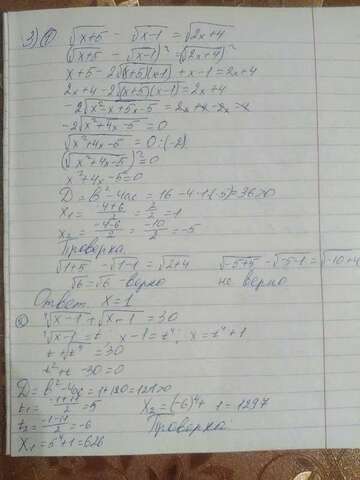 3) ① √x+5 - √x-1 = √2x+4
(√x+5 - √x-1)² = (√2x+4)²
x+5 - 2√(x+5)(x-1) + x-1 = 2x+4
2x+4 - 2√(x+5)(x-1) = 2x+4
-2√x²-x+5x-5 = 2x+4-2x-4
-2√x²+4x-5 = 0
√x²+4x-5 = 0:(-2)
(√x²+4x-5)² = 0
x²+4x-5=0
D = b²-4ac = 16-4·1·(-5)=36>0
x₁ = -4+6/2 = 2/2 = 1
x₂ = -4-6/2 = -10/2 = -5
Проверка.
√1+5 - √1-1 = √2+4 √-5+5 - √-5-1 = √-10+4
√6 = √6 - верно не верно
Ответ. x=1
√x-1 + √x-1 = 30
⁴√x-1 = t; x-1=t⁴; x=t⁴+1
t+√t⁴ = 30
t²+t-30=0
D = b²-4ac = 1+120=121>0
t₁ = -1+11/2 = 5 x₂=(-6)⁴+1=1297
t₂ = -1-11/2 = -6 Проверка:
x₁ = 5⁴+1=626